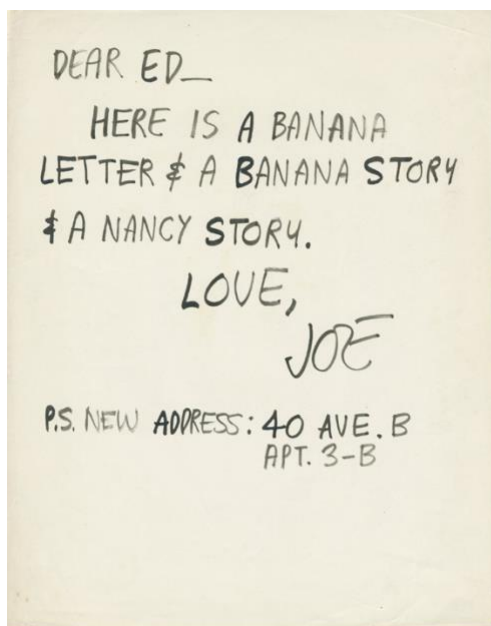 DEAR ED_
HERE IS A BANANA
LETTER & A BANANA STORY
& A NANCY STORY.
LOVE,
JOE
P.S. NEW ADDRESS: 40 AVE. B
APT. 3-B